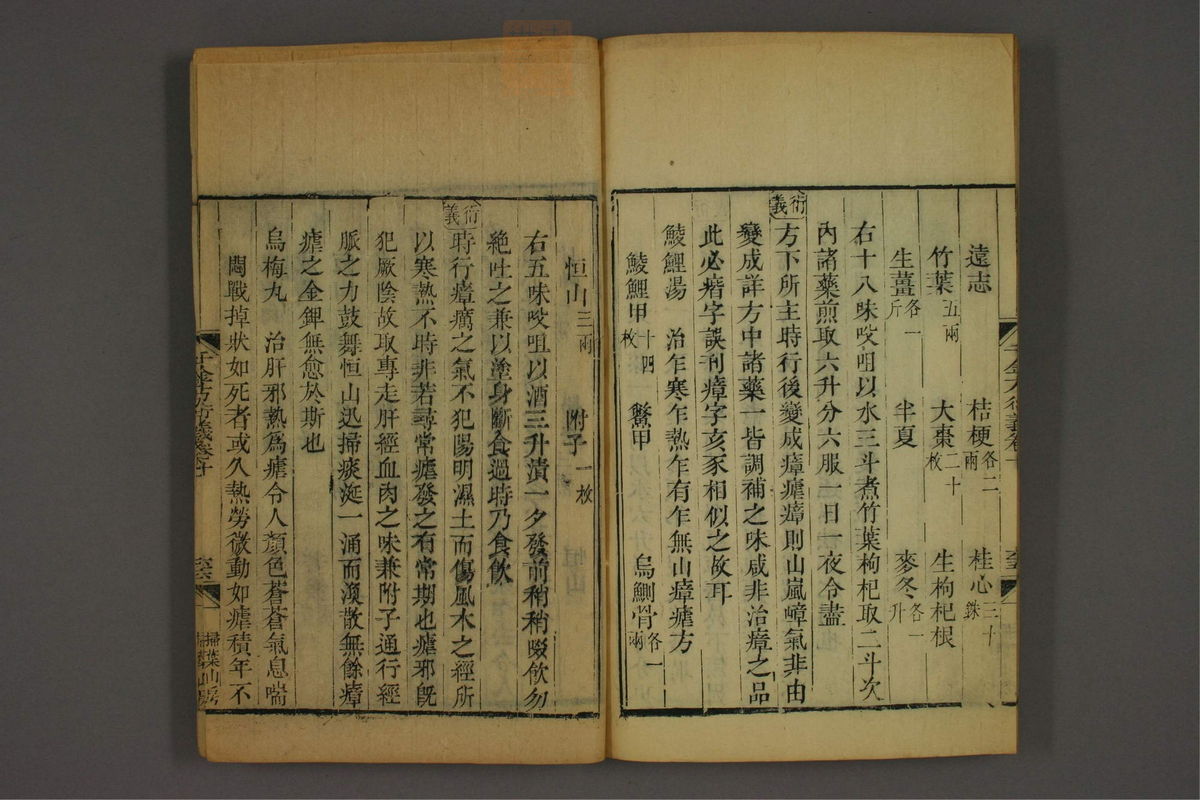 遠志 桔梗各二兩 桂心三十銖
竹葉五兩 大棗二十枚 生枸杞根
生薑各一斤 半夏 麥冬各一升
右十八味㕮咀以水三斗煮竹葉枸杞取二斗次
內諸藥煎取六升分六服一日一夜令盡
衍義
方下所主時行後變成瘴瘧瘴則山嵐嶂氣非由
變成詳方中諸藥一皆調補之味咸非治瘴之品
此必㾬字誤刊瘴字亥豕相似之故耳
鯪鯉湯 治乍寒乍熱乍有乍無山瘴瘧方
鯪鯉甲十四枚 鱉甲 烏鰂骨各一兩
恒山三兩 附子一枚
右五味㕮咀以酒三升漬一夕發前稍稍啜飲勿
絶吐之兼以塗身斷食過時乃食飲
衍義
時行瘴癘之氣不犯陽明濕土而傷風木之經所
以寒熱不時非若尋常瘧發之有常期也瘧邪旣
犯厥陰故取專走肝經血肉之味兼附子通行經
脈之力鼓舞恒山迅掃痰涎一涌而渙散無餘瘴
瘧之金鎞無愈於斯也
烏梅丸 治肝邪熱爲瘧令人顏色蒼蒼氣息喘
悶戰掉狀如死者或久熱勞微動如瘧積年不
千金方衍義卷十
掃葉山房